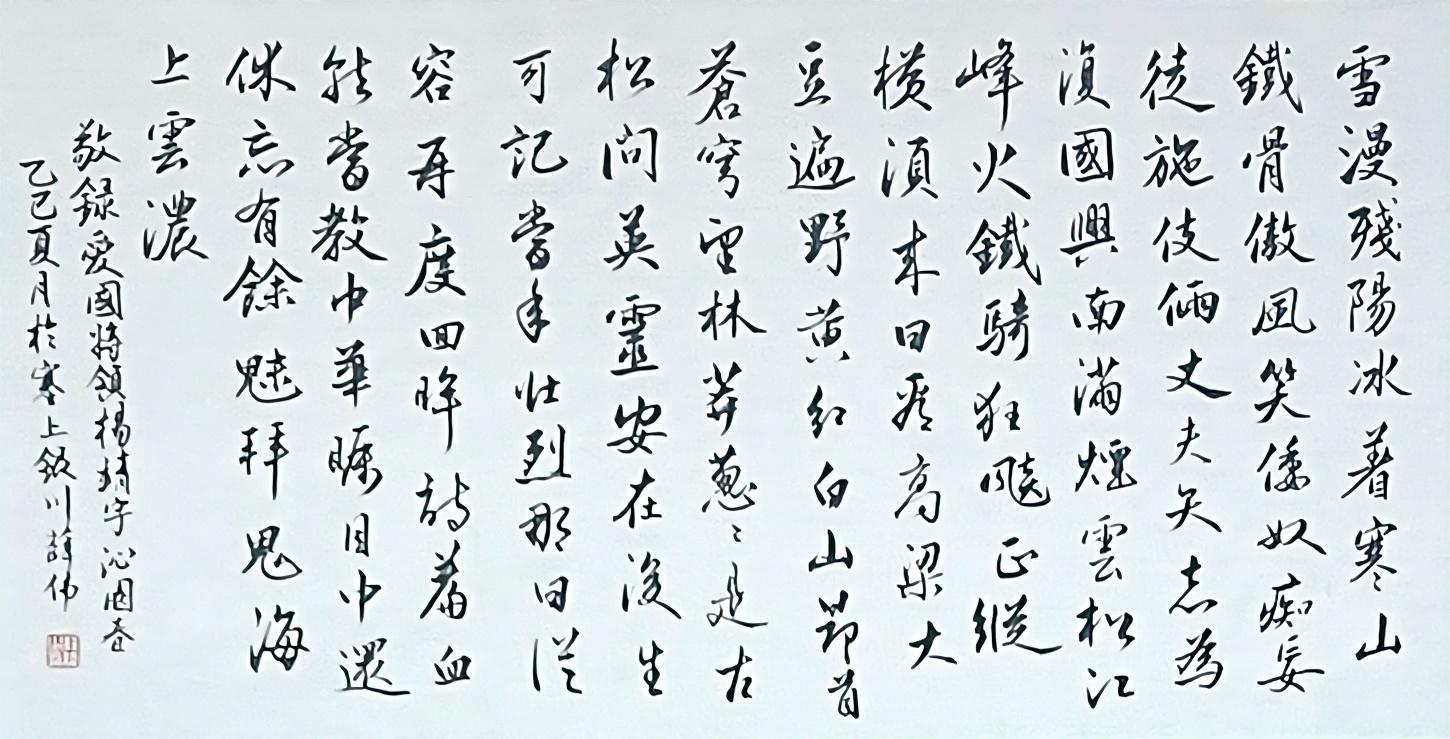 雪漫殘陽冰着寒山
鐵骨傲風笑倭奴痴妄
徒施伎倆丈夫矢志為
復國興南滿煙雲松江
峰火鐵騎狂飈正縱
橫須來日看高梁大
豆遍野黄紅白山昂首
蒼穹望林莽蔥〻是古
松問英靈安在後生
可記當年壯烈那日從
容再度回眸詩著血
能當教中華矚目中還
休忘有餘魅拜鬼海
上雲濃
敬録愛國將領楊靖宇沁園春
乙巳夏月於塞上銀川薛伟